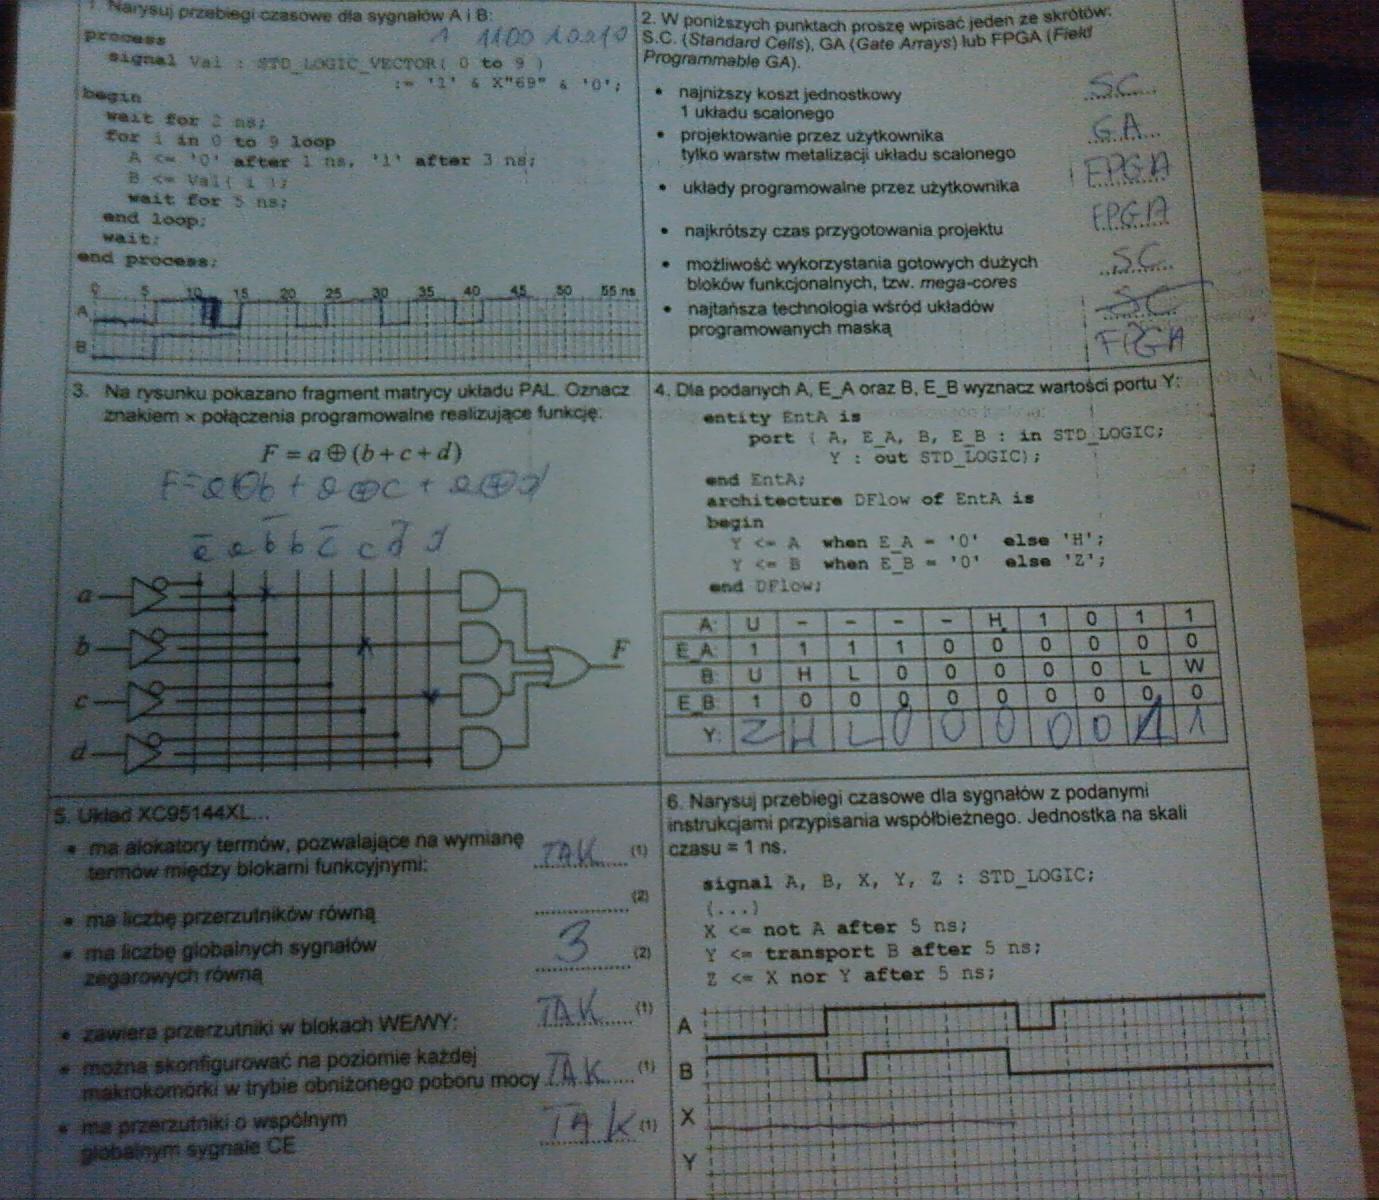 1. Narysuj przebiegi czasowe dla sygnałów A i B:
1 1100 10210
process
signal Val : STD_LOGIC_VECTOR( 0 to 9 )
:= '1' & X"69" & '0';
begin
wait for 2 ns;
for i in 0 to 9 loop
A <= '0' after 1 ns, '1' after 3 ns;
B <= Val( i );
wait for 5 ns;
end loop;
wait;
end process;
0 5 10 15 20 25 30 35 40 45 50 55 ns
A
B
2. W poniższych punktach proszę wpisać jeden ze skrótów:
S.C. (Standard Cells), GA (Gate Arrays) lub FPGA (Field
Programmable GA).
• najniższy koszt jednostkowy
1 układu scalonego
SC
• projektowanie przez użytkownika
tylko warstw metalizacji układu scalonego
GA
• układy programowalne przez użytkownika
FPGA
• najkrótszy czas przygotowania projektu
FPGA
• możliwość wykorzystania gotowych dużych
bloków funkcjonalnych, tzw. mega-cores
SC
• najtańsza technologia wśród układów
programowanych maską
SC
FPGA
3. Na rysunku pokazano fragment matrycy układu PAL. Oznacz
znakiem × połączenia programowalne realizujące funkcję:
F = a ⊕ (b + c + d)
F = a⊕b + a⊕c + a⊕d
a̅ a b̅ b c̅ c d̅ d
a
b
c
d
F
4. Dla podanych A, E_A oraz B, E_B wyznacz wartości portu Y:
entity EntA is
port ( A, E_A, B, E_B : in STD_LOGIC;
Y : out STD_LOGIC);
end EntA;
architecture DFlow of EntA is
begin
Y <= A when E_A = '0' else 'H';
Y <= B when E_B = '0' else 'Z';
end DFlow;
A: U - - - - H 1 0 1 1
E_A: 1 1 1 1 0 0 0 0 0 0
B: U H L 0 0 0 0 0 L W
E_B: 1 0 0 0 0 0 0 0 0 0
Y: Z H L 0 0 0 0 0 1 1
5. Układ XC95144XL...
• ma alokatory termów, pozwalające na wymianę
termów między blokami funkcyjnymi:
TAK (1)
• ma liczbę przerzutników równą
(2)
• ma liczbę globalnych sygnałów
zegarowych równą
3 (2)
• zawiera przerzutniki w blokach WE/WY:
TAK (1)
• można skonfigurować na poziomie każdej
makrokomórki w trybie obniżonego poboru mocy
TAK (1)
• ma przerzutniki o wspólnym
globalnym sygnale CE
TAK (1)
6. Narysuj przebiegi czasowe dla sygnałów z podanymi
instrukcjami przypisania współbieżnego. Jednostka na skali
czasu = 1 ns.
signal A, B, X, Y, Z : STD_LOGIC;
(...)
X <= not A after 5 ns;
Y <= transport B after 5 ns;
Z <= X nor Y after 5 ns;
A
B
X
Y